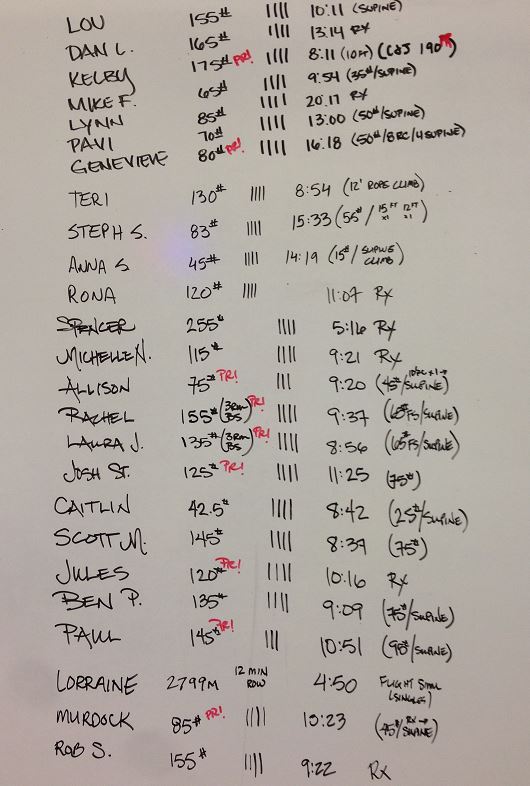 LOU 155# |||| 10:11 (SUPINE)
DAN L. 165# |||| 13:14 RX
KELBY 175# PR! |||| 8:11 (10FT) (C&J 190#)
MIKE F. 65# |||| 9:54 (35#/SUPINE)
LYNN 85# |||| 20:17 RX
PAVI 70# |||| 13:00 (50#/SUPINE)
GENEVIEVE 80# PR! |||| 16:18 (50#/8RC/4SUPINE)
TERI 130# |||| 8:54 (12' ROPE CLIMB)
STEPH S. 83# |||| 15:33 (55#/15FT x1 12FT x1)
ANNA S 45# |||| 14:19 (15#/SUPINE CLIMB)
RONA 120# |||| 11:07 RX
SPENCER 255# |||| 5:16 RX
MICHELLE N. 115# |||| 9:21 RX
ALLISON 75# PR! ||| 9:20 (45#/SUPINE)
RACHEL 155# (3RM BS) PR! |||| 9:37 (65#FS/SUPINE)
LAURA J. 135# (3RM BS) PR! |||| 8:56 (65#FS/SUPINE)
JOSH ST. 125# PR! |||| 11:25 (75#)
CAITLIN 42.5# |||| 8:42 (25#/SUPINE)
SCOTT M. 145# |||| 8:39 (75#)
JULES 120# PR! |||| 10:16 RX
BEN P. 135# |||| 9:09 (75#/SUPINE)
PAUL 145# PR! ||| 10:51 (95#/SUPINE)
LORRAINE 2799M 12 MIN ROW 4:50 FLIGHT SIM. (SINGLES)
MURDOCK 85# PR! |||| 10:23
ROB S. 155# |||| 9:22 RX